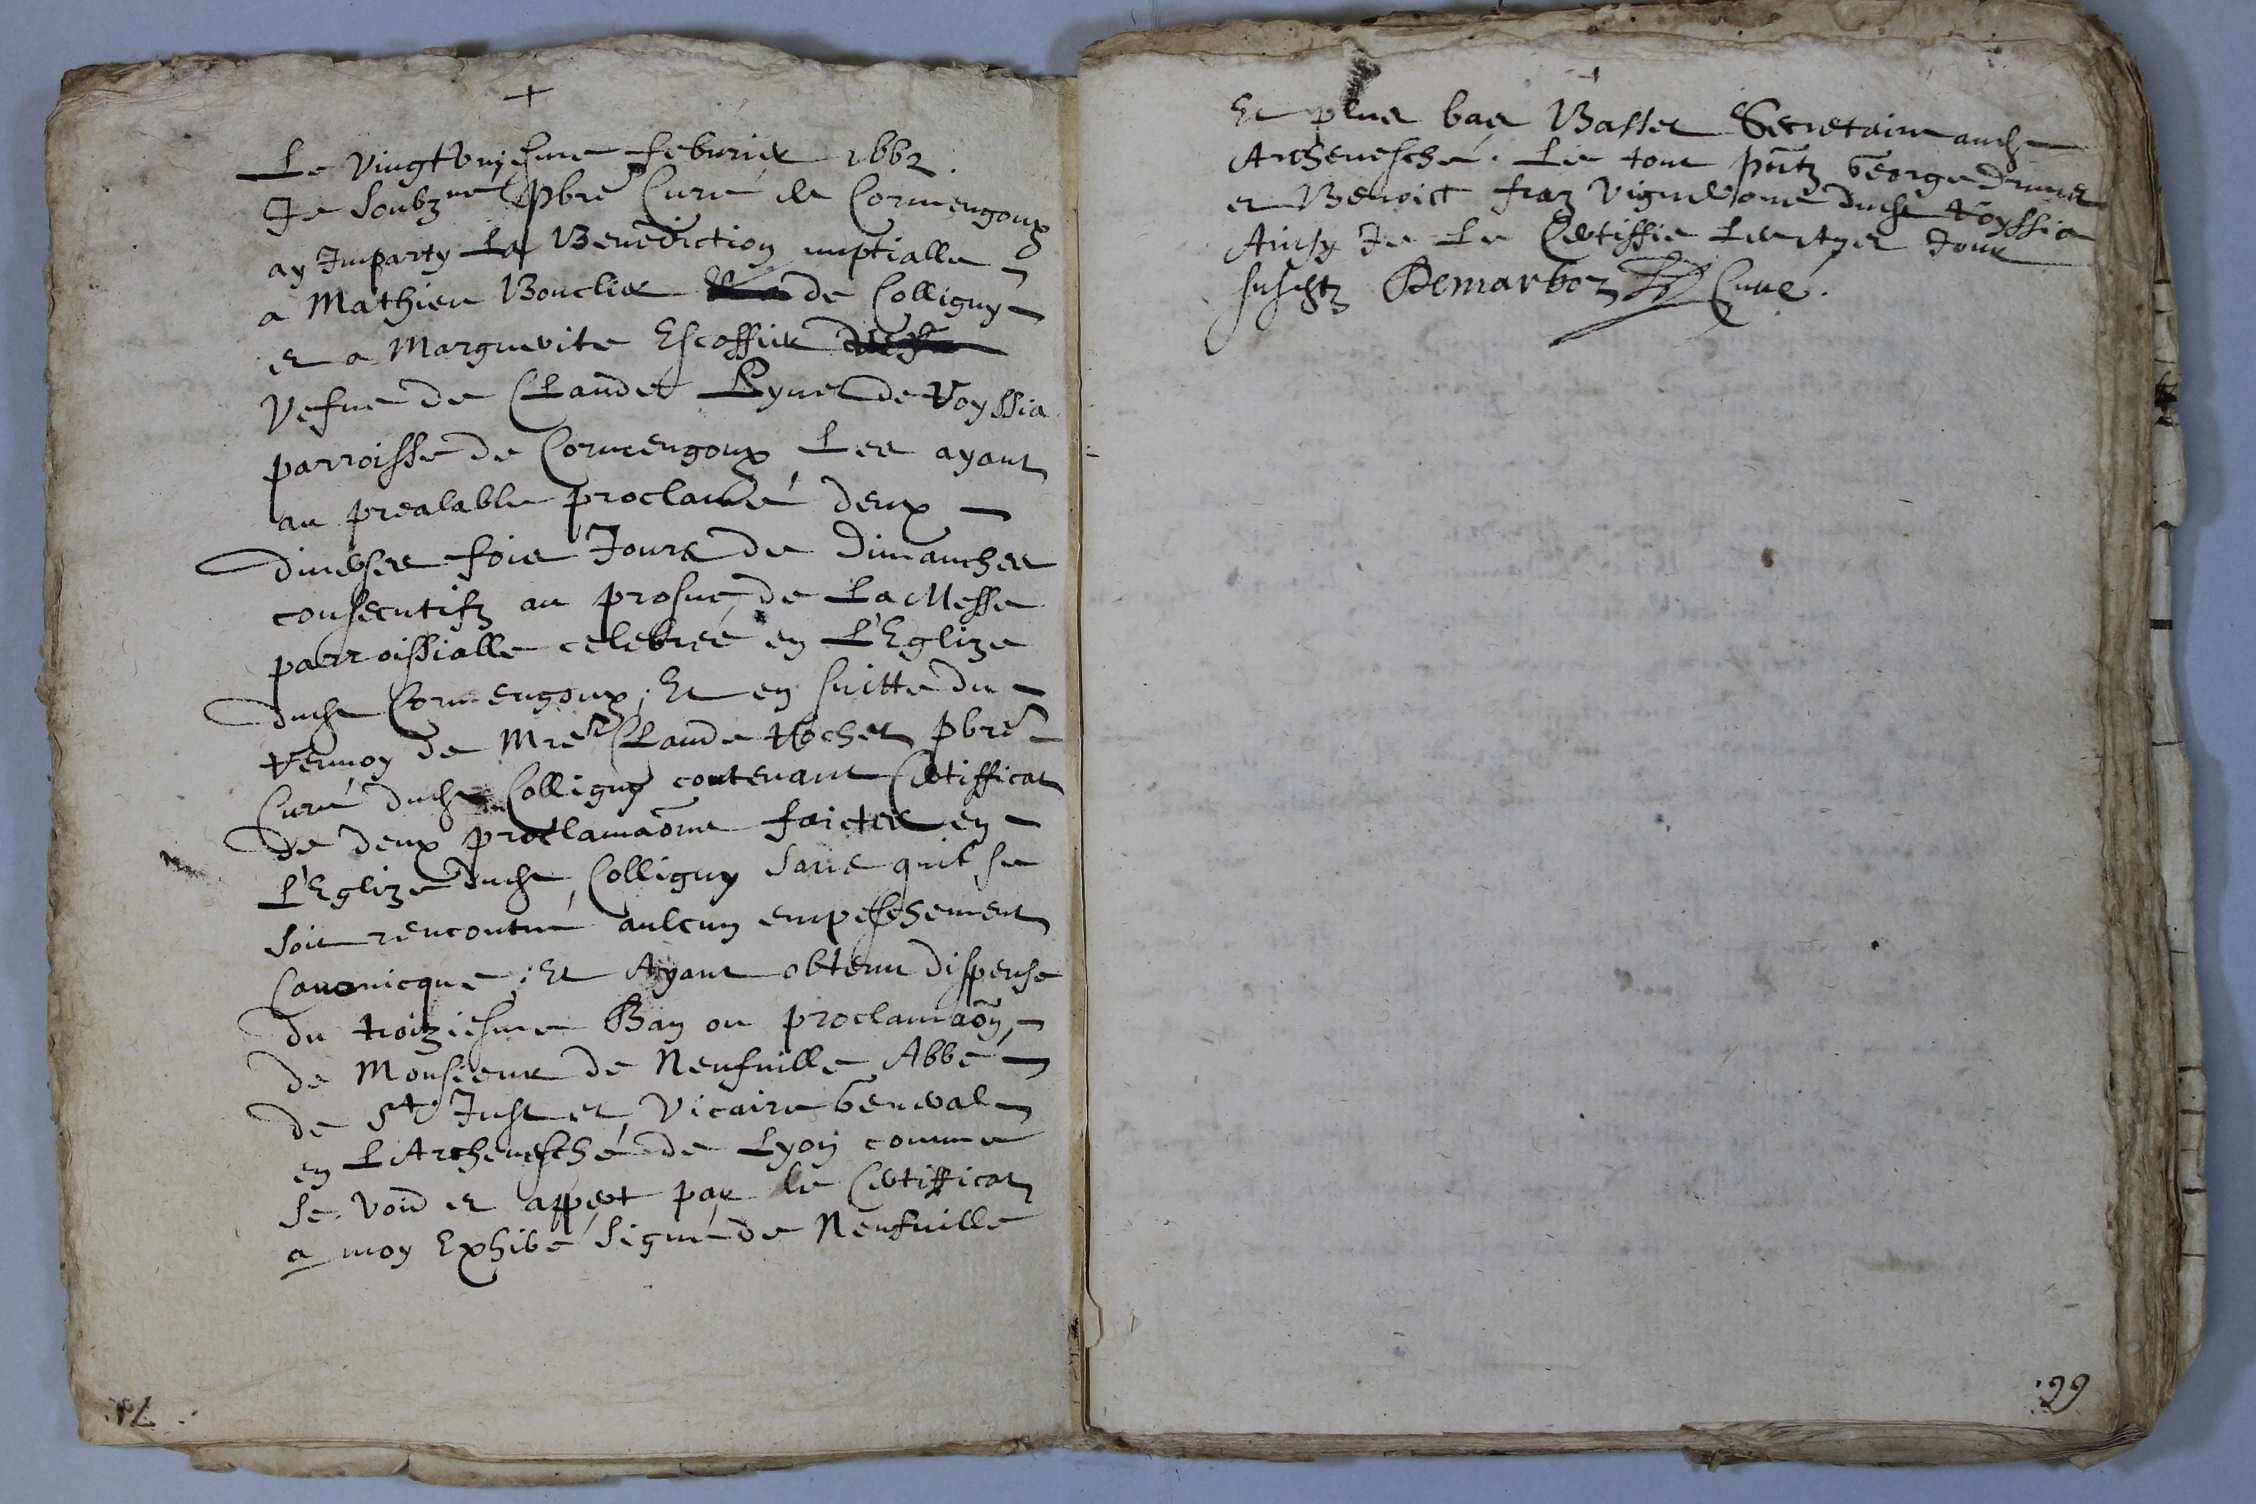 Le vingt unjesme febvrier 1662.
Je soubz.né pbre Curé de Cormengoux
ay Imparty La Benediction nuptialle
a Mathieu Bouclier de Colligny
et a Marguerite Escoffier
vefue de Claude Pynet de Voyssia
parroisse de Cormengoux Les ayant
au prealable proclamé deux
diverses fois Jours de Dimanches
consecutifz au prosne de La Messe
parroissialle celebreé en L'Eglize
dud. Cormengoux ; Et en suitte du
renvoy de Mre Claude pbre
Curé dud. Colligny contenant Certifficat
de deux proclamaõns faictes en
L'Eglize dud. Colligny sans quil se
soit rencontré aulcun empeschement
Canonicque ; Et Ayant obtenu dispense
du troiziesme Ban ou proclamaõn
de Monsieur de Neufville Abbé
de St. Just et Vicaire General
en L'Archevesché de Lyon comme
se void et appert par le Certifficat
a moy Exhibé signé de Neufville
Et plus bas Basset Secretaire aud.
Archevesché. Le tout pñtz George
et Benoict fraz vignerons dud. Voyssia
Ainsy Je Le Certiffie Les An et Jour
susd.tz Demarboz Curé.
99